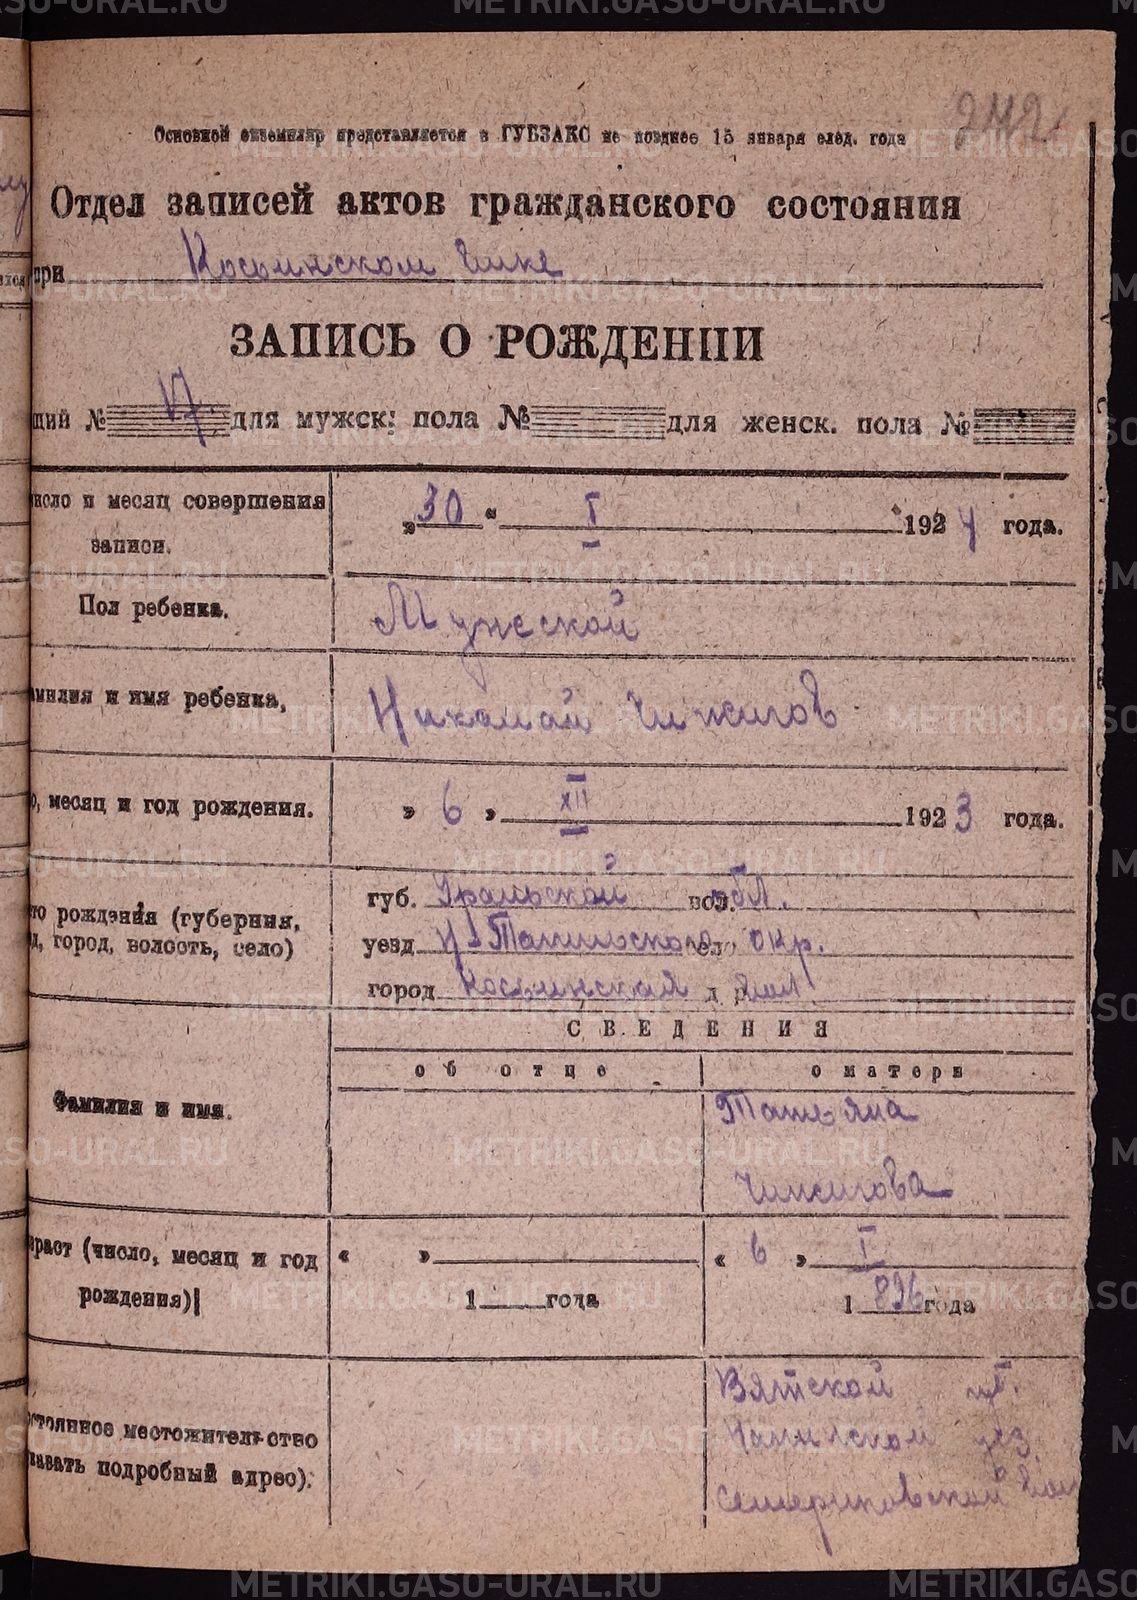 242
Основной экземпляр представляется в ГУБЗАКС не позднее 15 января след. года
Отдел записей актов гражданского состояния
при Косьинском
ЗАПИСЬ О РОЖДЕНИИ
щий № 17. для мужск: пола № для женск. пола №
число и месяц совершения записи. „30“ I 1924 года.
Пол ребенка. Мужеской
амилия и имя ребенка, Николай Чижигов
о, месяц и год рождения. „ 6 „ XII 1923 года.
то рождэния (губерния, губ. Уральской вол. обл.
д, город, волость, село) уезд Н Тагильского село окр.
город д р
СВЕДЕНИЯ
об отце о матери
Фамилия и имя. Татьяна
Чижигова
раст (число, месяц и год « » « 6 » I
рождения) 1 года 1 896 года
стоянное местожительство Вятской губ.
казать подробный адрес): уез
METRIKI.GASO-URAL.RU